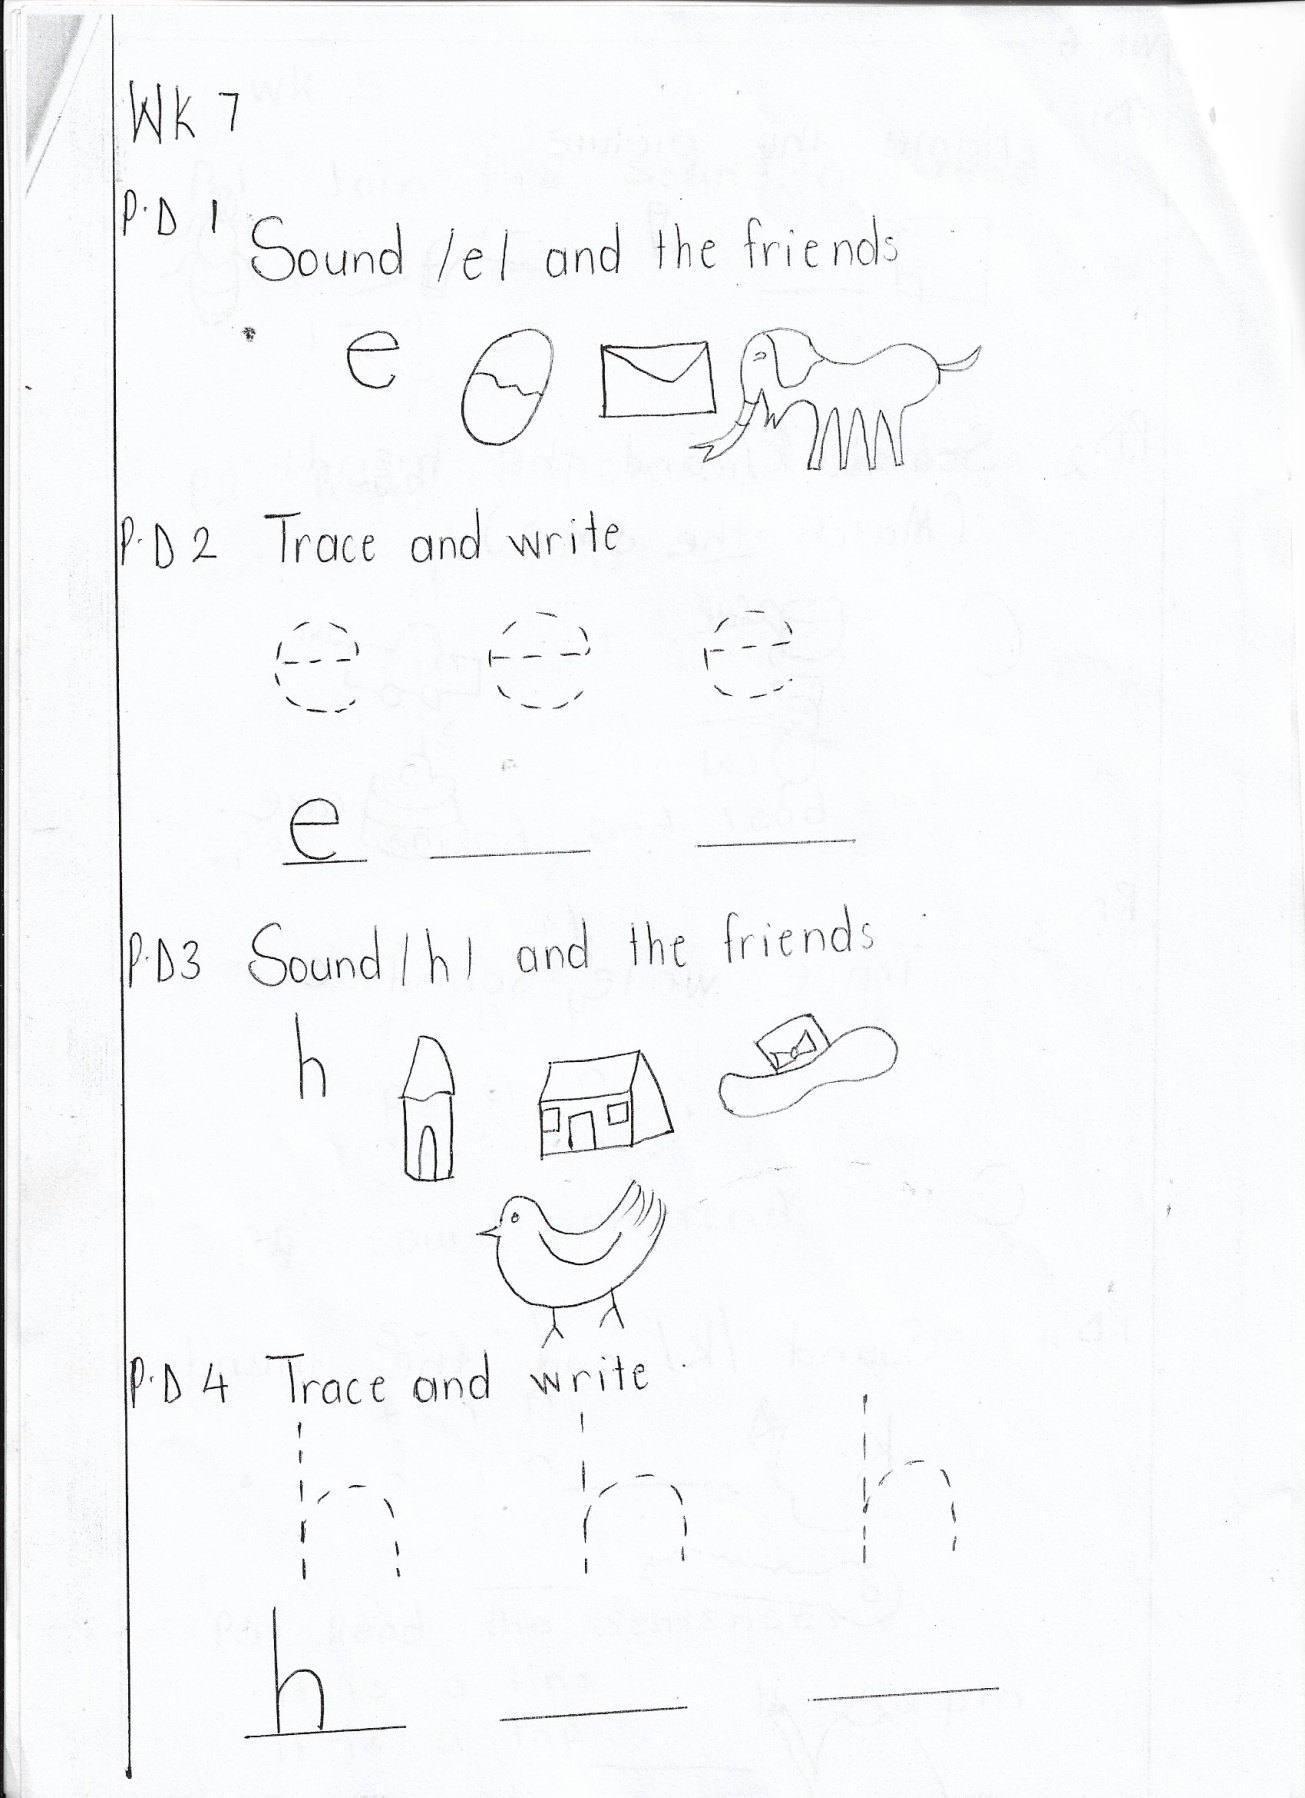 WK 7
P.D 1 Sound /e/ and the friends
e
P.D 2 Trace and write
e e e
e
P.D3 Sound /h/ and the friends
h
P.D 4 Trace and write
h h h
h